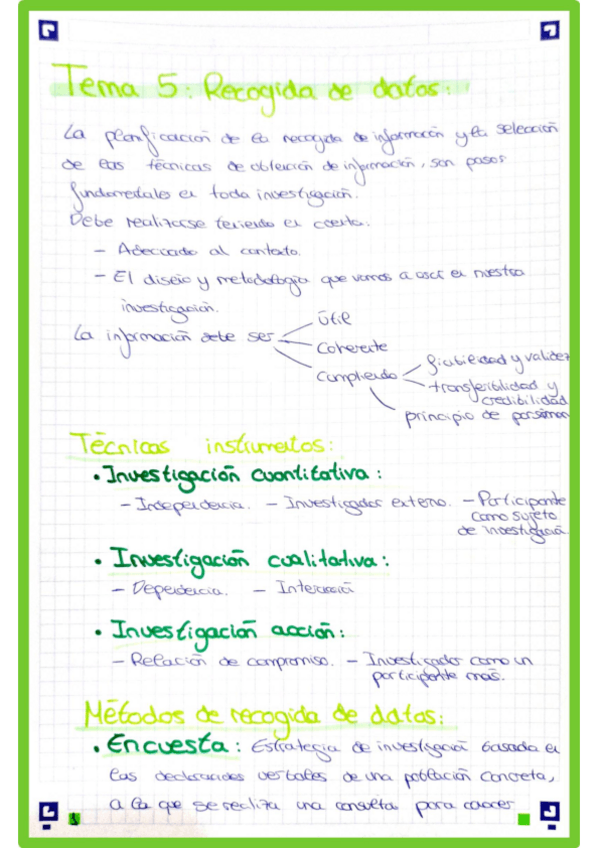 Tema 5: Recogida de datos:
La planificación de la recogida de información y la selección
de las técnicas de obtención de información, son pasos
fundamentales en toda investigación.
Debe realizarse teniendo en cuenta:
- Adecuado al contexto.
- El diseño y metodología que vamos a usar en nuestra
investigación.
La información debe ser
Útil
Coherente
Cumpliendo
fiabilidad y validez
transferibilidad y
credibilidad
principio de parsimon
Técnicas instrumentos:
• Investigación cuantitativa:
- Independencia. - Investigador externo. - Participante
como sujeto
de investigación.
• Investigación cualitativa:
- Dependencia. - Interacción
• Investigación acción:
- Relación de compromiso. - Investigador como un
participante más.
Métodos de recogida de datos:
• Encuesta: Estrategia de investigación basada en
las declaraciones verbales de una población concreta,
a la que se realiza una consulta para conocer
1